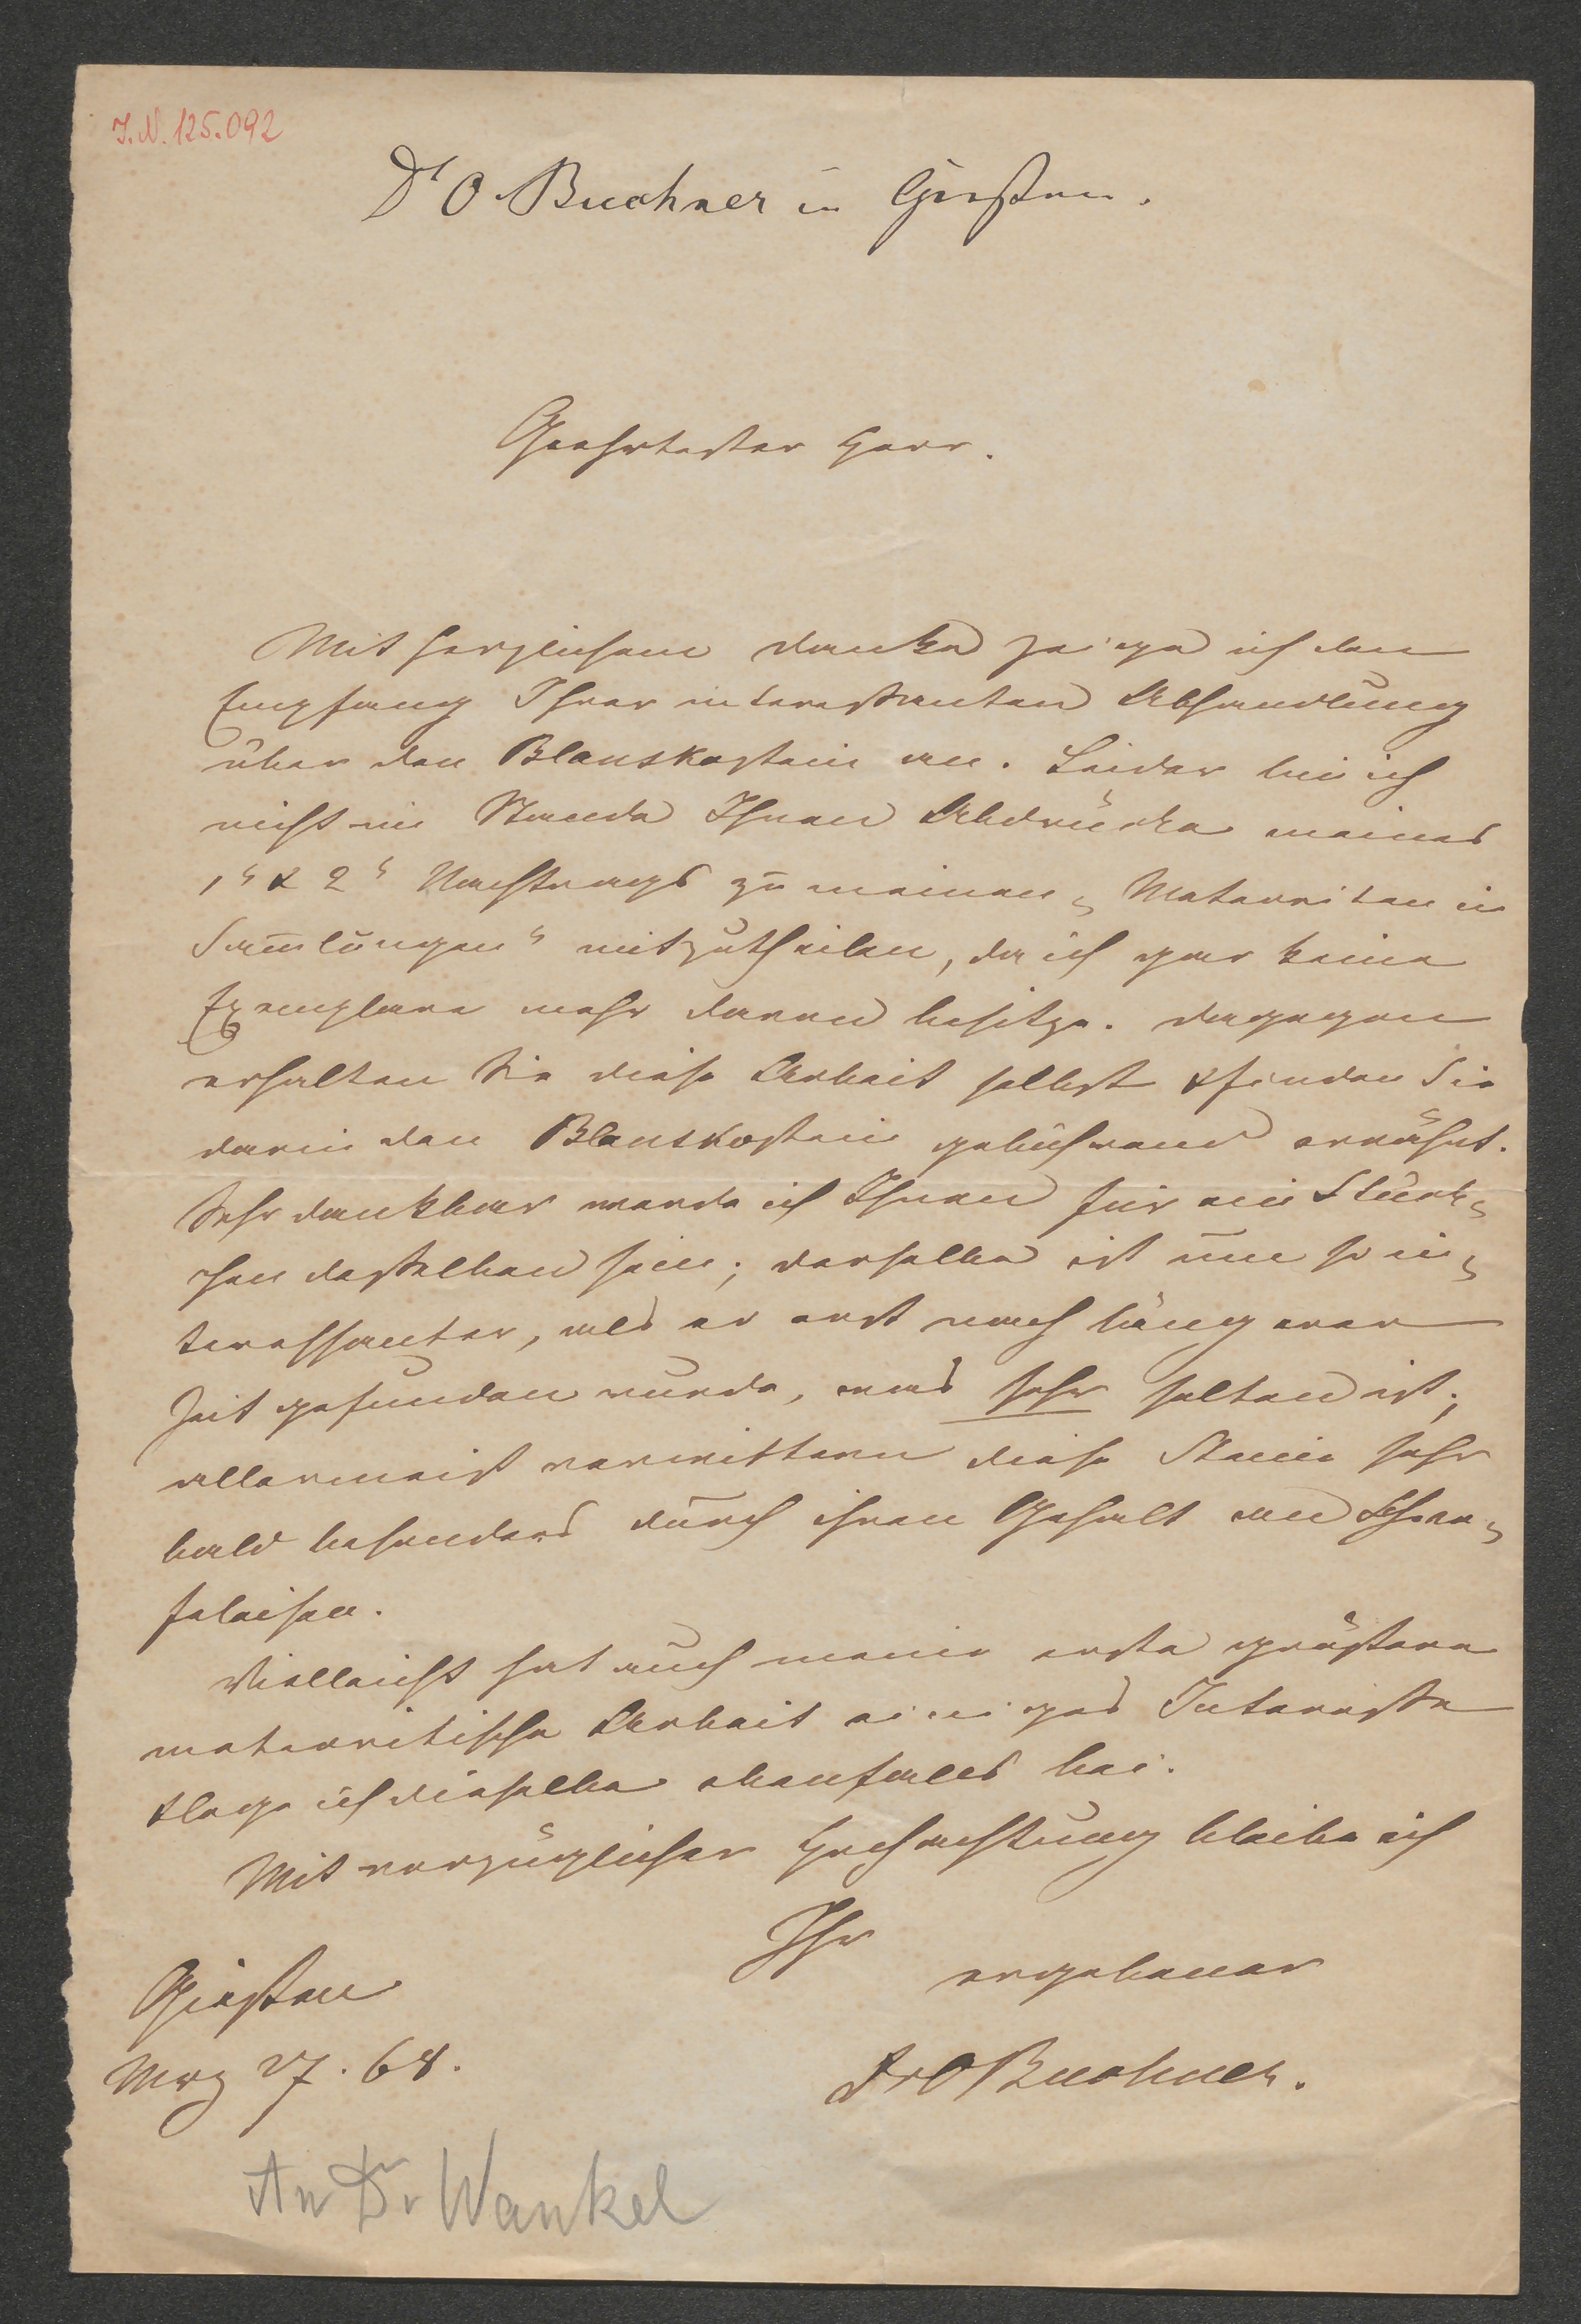 I.N. 125.092
Dr O. Buchner in Gießen.
Geehrtester Herr.
Mit herzlichem Danke zeige ich den
Empfang Ihrer interessanten Abhandlung
über den Blanskostein an. Leider bin ich
nicht im Stande Ihnen Abdrücke meines
1" & 2" Nachtrags zu meinen „Meteoriten in
Sam̅lungen" mitzutheilen, da ich gar keine
Exemplare mehr davon besitze. Dagegen
erhalten Sie diese Arbeit selbst & finden Sie
darin den Blanskostein gebührend erwähnt.
Sehr dankbar werde ich Ihnen für ein Stück-
chen desselben sein; derselbe ist um so in-
teressanter, als er erst nach längerer
Zeit gefunden wurde, was sehr selten ist;
allermeist verwittern diese Steine sehr
bald besonders durch ihren Gehalt an Schwe-
feleisen.
Vielleicht hat auch meine erste größere
meteoritische Arbeit einiges Interesse
& lege ich dieselbe ebenfalls bei.
Mit vorzüglicher Hochachtung bleibe ich
Ihr
ergebener
Gießen
Mrz 27. 68.
Dr O Buchner.
An Dr Wankel